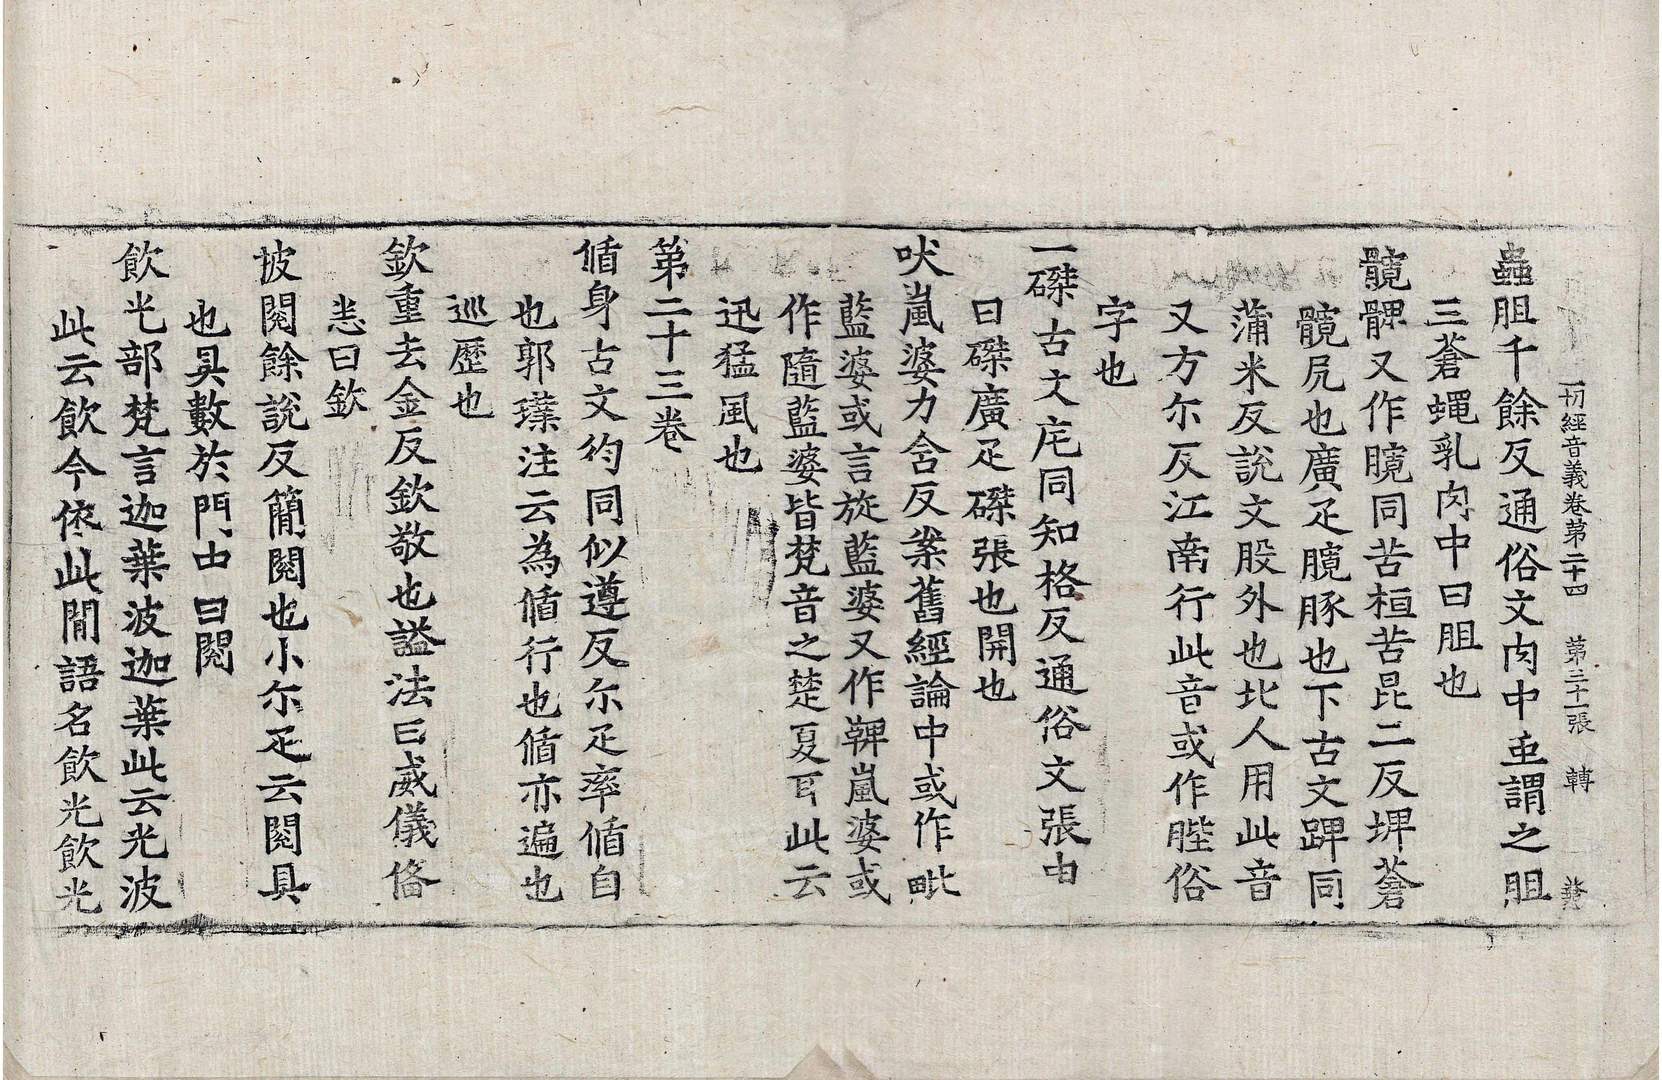 一切經音義卷第二十四　第三十一張　轉
蟲胆千餘反通俗文肉中䖝謂之胆
三蒼蠅乳肉中曰胆也
髖髁又作臗同苦桓苦昆二反埤蒼
髖尻也廣疋臗豚也下古文踝同
蒲米反說文股外也北人用此音
又方尔反江南行此音或作䏶俗
字也
一磔古文厇同知格反通俗文張申
曰磔廣疋磔張也開也
吠嵐婆力含反案舊經論中或作毗
藍婆或言旋藍婆又作鞞嵐婆或
作隨藍婆皆梵音之楚夏耳此云
迅猛風也
第二十三卷
循身古文徇同似遵反尔疋率循自
也郭璞注云為循行也循亦遍也
巡歷也
欽重去金反欽敬也謚法曰威儀俻
悉曰欽
披閱餘說反簡閱也小尔疋云閱具
也具數於門中曰閱
飲光部梵言迦葉波迦葉此云光波
此云飲今依此閒語名飲光飲光